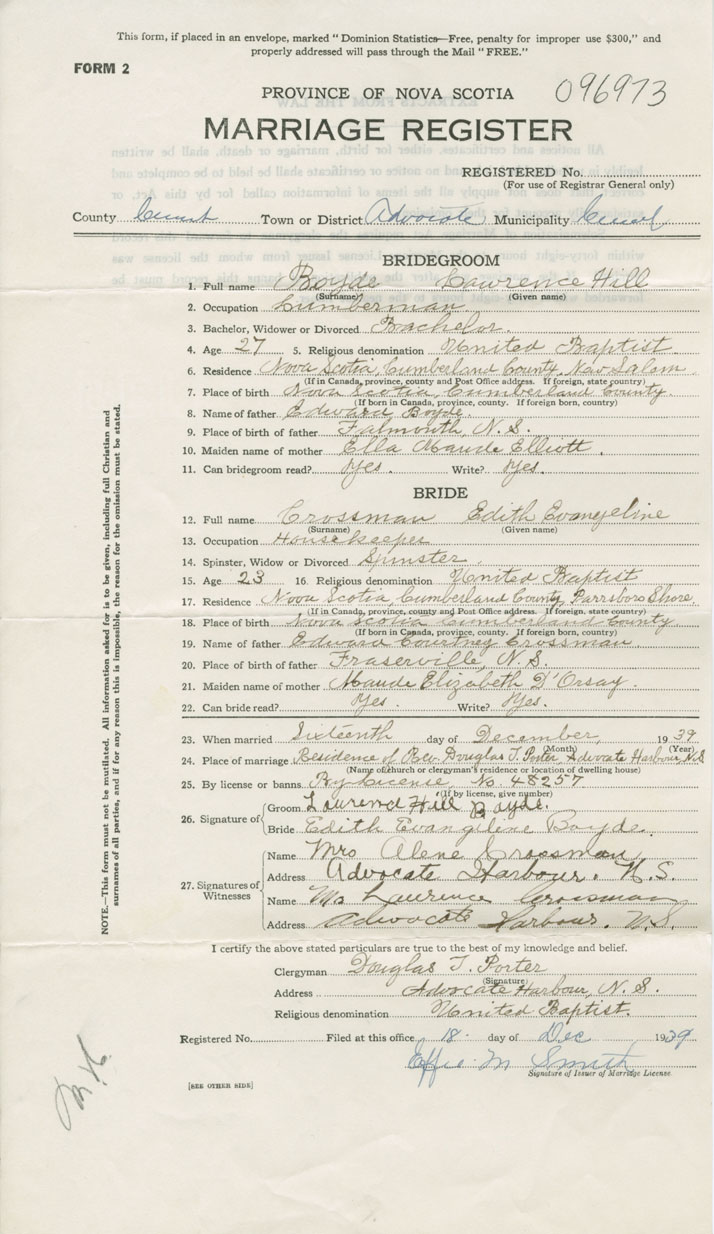 This form, if placed in an envelope, marked "Dominion Statistics—Free, penalty for improper use $300," and
properly addressed will pass through the Mail "FREE."
FORM 2
PROVINCE OF NOVA SCOTIA
096973
MARRIAGE REGISTER
REGISTERED No.
(For use of Registrar General only)
County Town or District Advocate Municipality
BRIDEGROOM
1. Full name Boyde Lawrence Hill
(Surname) (Given name)
2. Occupation Lumberman
3. Bachelor, Widower or Divorced Bachelor.
4. Age 27 5. Religious denomination United Baptist
6. Residence Nova Scotia, Cumberland County, New Salem
(If in Canada, province, county and Post Office address. If foreign, state country)
7. Place of birth Nova Scotia Cumberland County.
(If born in Canada, province, county. If foreign born, country)
8. Name of father Edward Boyde.
9. Place of birth of father Falmouth, N.S.
10. Maiden name of mother Ella Maude Elliott.
11. Can bridegroom read? Yes. Write? Yes.
BRIDE
12. Full name Crossman Edith Evangeline
(Surname) (Given name)
13. Occupation Housekeeper
14. Spinster, Widow or Divorced Spinster
15. Age 23 16. Religious denomination United Baptist
17. Residence Nova Scotia Cumberland County, Parrsboro Shore,
(If in Canada, province, county and Post Office address. If foreign, state country)
18. Place of birth Nova Scotia Cumberland County.
(If born in Canada, province, county. If foreign born, country)
19. Name of father Edward Courtney Crossman
20. Place of birth of father Fraserville, N.S.
21. Maiden name of mother Maude Elizabeth D'Orsay.
22. Can bride read? Yes. Write? Yes.
23. When married Sixteenth day of December, 1939
(Month) (Year)
24. Place of marriage Residence of Rev. Douglas T. Porter, Advocate Harbour, N.S.
(Name of church or clergyman's residence or location of dwelling house)
25. By license or banns By License No. 48257
(If by license, give number)
26. Signature of
Groom Laurence Hill Boyde.
Bride Edith Evangeline Boyde.
27. Signatures of Witnesses
Name Mrs Alene Crossman
Address Advocate Harbour. N.S.
Name Mr Laurence Crossman
Address Advocate Harbour. N.S.
I certify the above stated particulars are true to the best of my knowledge and belief.
Clergyman Douglas T. Porter
(Signature)
Address Advocate Harbour, N.S.
Religious denomination United Baptist.
Registered No. Filed at this office 18 day of Dec 1939
Effie M Smith
Signature of Issuer of Marriage License.
[SEE OTHER SIDE]
NOTE.—This form must not be mutilated. All information asked for is to be given, including full Christian and
surnames of all parties, and if for any reason this is impossible, the reason for the omission must be stated.